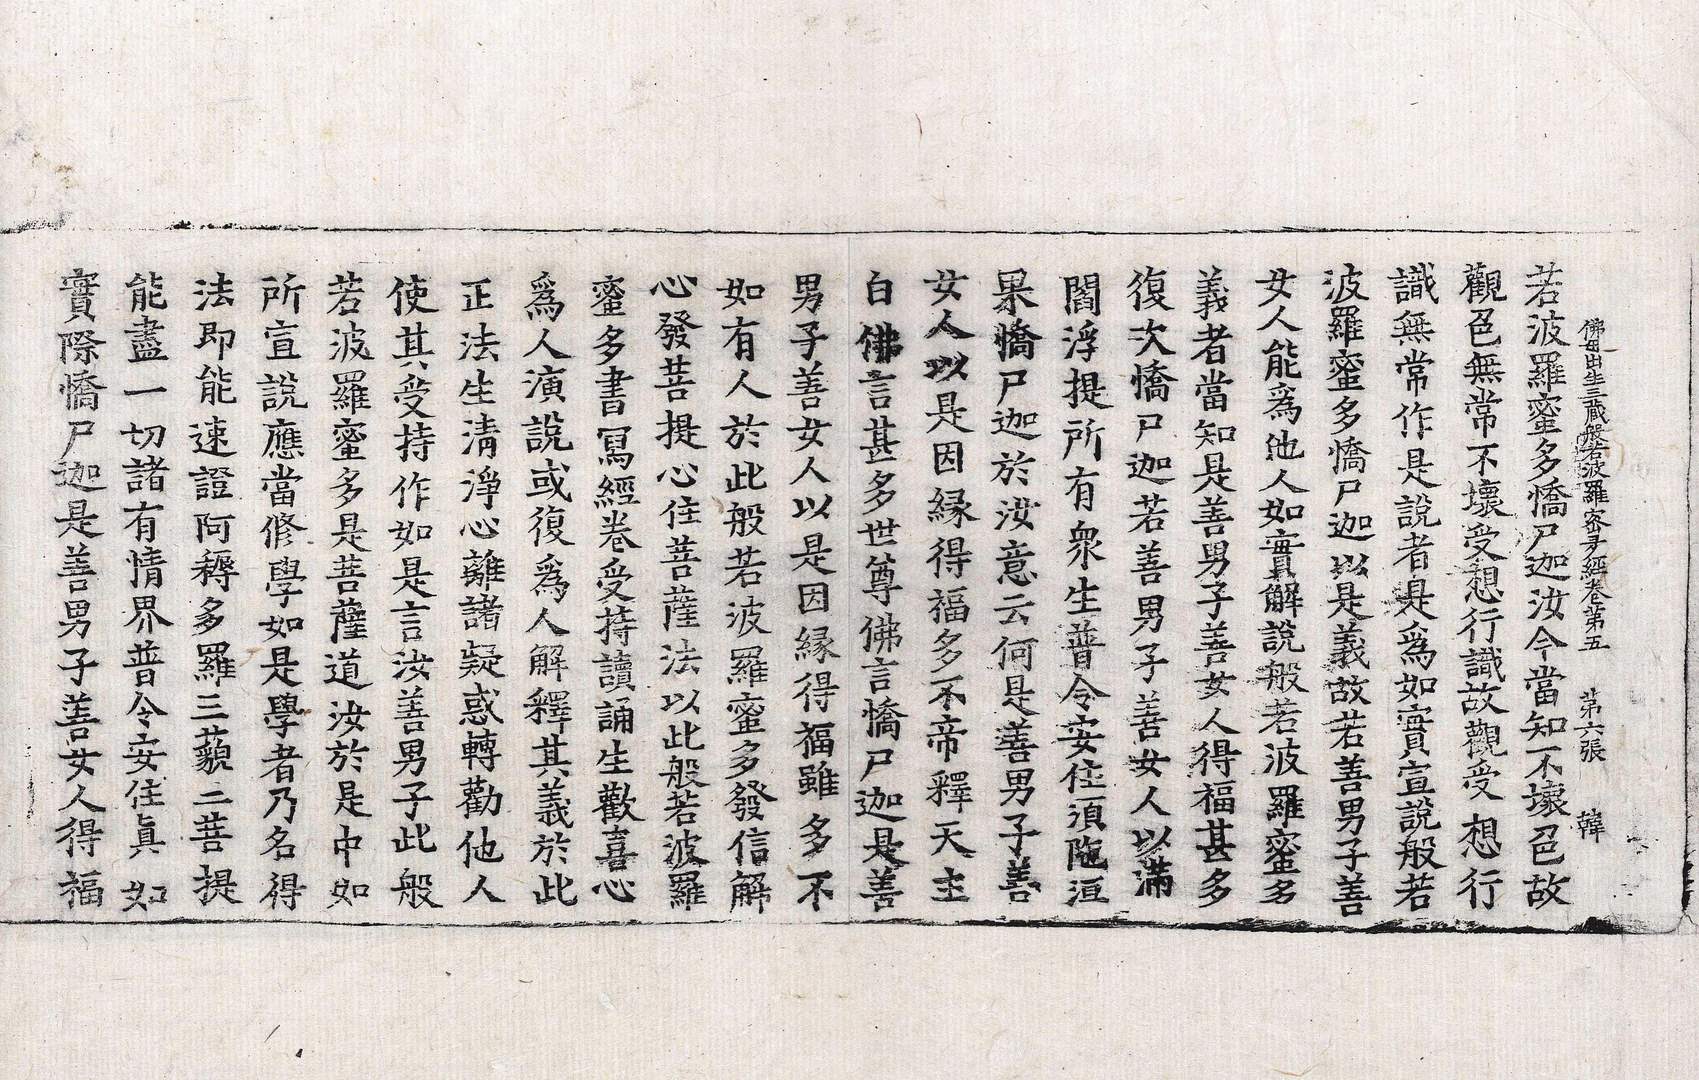 佛母出生三藏般若波羅蜜多經卷第五 第六張 韓
若波羅蜜多憍尸迦汝今當知不壞色故
觀色無常不壞受想行識故觀受想行
識無常作是說者是爲如實宣說般若
波羅蜜多憍尸迦以是義故若善男子善
女人能爲他人如實解說般若波羅蜜多
義者當知是善男子善女人得福甚多
復次憍尸迦若善男子善女人以滿
閻浮提所有衆生普令安住須陁洹
果憍尸迦於汝意云何是善男子善
女人以是因緣得福多不帝釋天主
白佛言甚多世尊佛言憍尸迦是善
男子善女人以是因緣得福雖多不
如有人於此般若波羅蜜多發信解
心發菩提心住菩薩法以此般若波羅
蜜多書寫經卷受持讀誦生歡喜心
爲人演說或復爲人解釋其義於此
正法生清淨心離諸疑惑轉勸他人
使其受持作如是言汝善男子此般
若波羅蜜多是菩薩道汝於是中如
所宣說應當修學如是學者乃名得
法即能速證阿耨多羅三藐三菩提
能盡一切諸有情界普令安住眞如
實際憍尸迦是善男子善女人得福